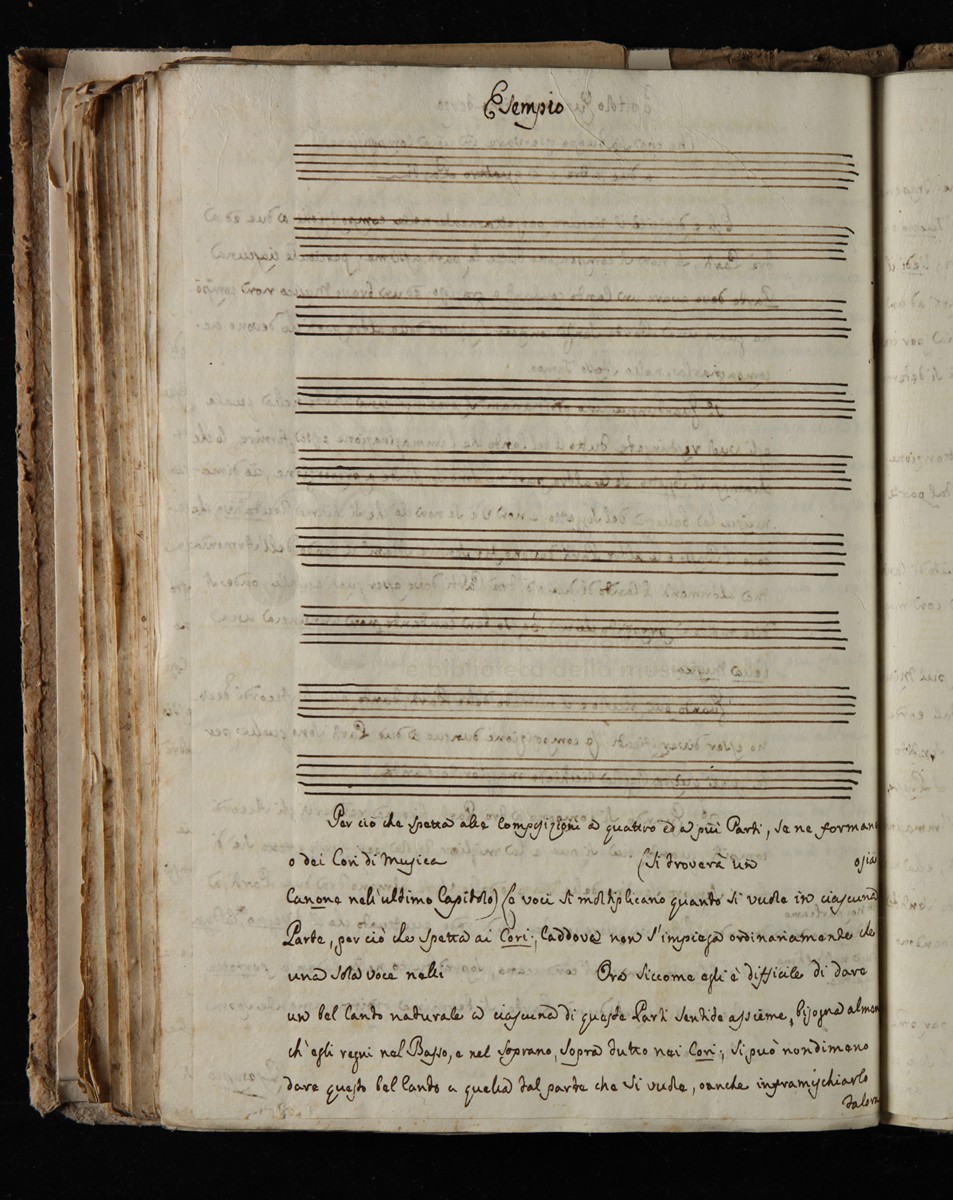 Esempio
Per ciò che spetta alle Composizioni a quattro ed a più Parti, se ne forman
o dei Cori di Musica (si troverà un osia
Canone nell'ultimo Capitolo) le voci si moltiplicano quanto si vuole in ciascuna
Parte, per ciò che spetta ai Cori; laddove non s'impiega ordinariamente che
una sola voce nelli Ora siccome egli è difficile di dare
un bel Canto naturale a ciascuna di queste Parti sentite assieme, bisogna almen
ch'egli regni nel Basso, e nel Soprano, sopra tutto nei Cori; si può nondimeno
dare questo bel Canto a quella tal parte che si vuole, o anche inframischiarlo
talora